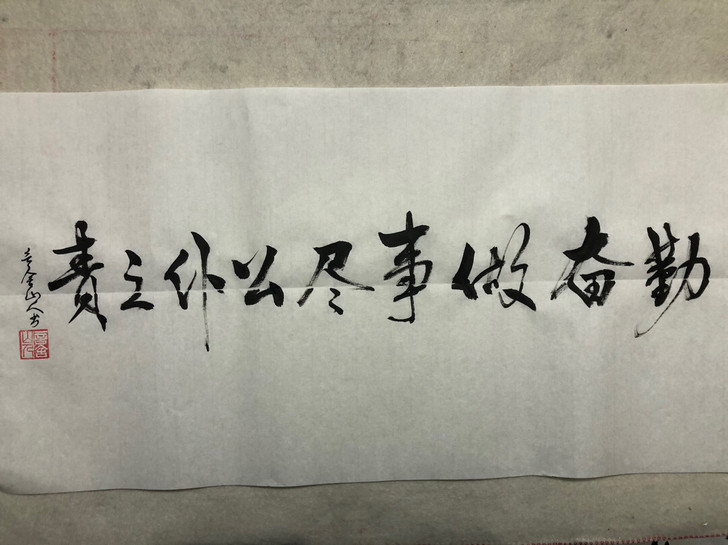 勤奋做事尽公仆之责
山人书